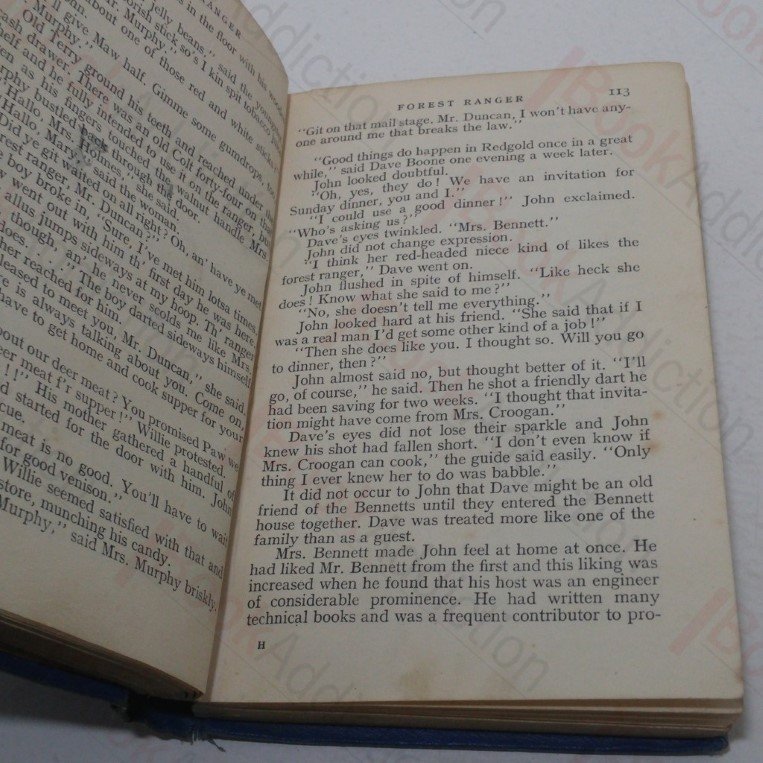 RANGER
in the floor with his wooden
jelly beans," said the youngster
orish stick so's I kin spit tobacco
about one of those red and white sticks,
Mr. Murphy."
ll give Maw half. Gimme some gundreps, to
Murphy."
Old Terry ground his teeth and reached under the
ash drawer. There was an old Colt forty-four on that
elf and he fully intended to use it on the ranger, but
en as his fingers touched the walnut handle Mrs
urphy bustled back through the door.
"Hallo, Mrs.
"Hallo, Mary," said she.
"Did ye git waited on all right? Oh, an' have ye met
forest ranger, Mr. Duncan?" said the woman.
e boy broke in, "Sure, I've met him lotsa times.
w went out with him th' first day he was here.
allus jumps sideways at my hoop. Th' ranger
though, an' he never scolds me like Mrs.
does." The boy darted sideways himself
her reached for him.
leased to meet you, Mr. Duncan," she said.
e is always talking about you. Come on,
have to get home and cook supper for your
about our deer meat? You promised Paw we
eer meat f'r supper!" Willie protested.
!!" His mother gathered a handful of
d started for the door with him. John
cue.
meat is no good. You'll have to wait
for good venison."
Willie seemed satisfied with that and
store, munching his candy.
Murphy," said Mrs. Murphy briskly.
FOREST RANGER 113
"Git on that mail stage. Mr. Duncan, I won't have any-
one around me that breaks the law."
"Good things do happen in Redgold once in a great
while," said Dave Boone one evening a week later.
John looked doubtful.
"Oh, yes, they do! We have an invitation for
Sunday dinner, you and I."
"I could use a good dinner!" John exclaimed.
"Who's asking us?"
Dave's eyes twinkled. "Mrs. Bennett."
John did not change expression.
"I think her red-headed niece kind of likes the
forest ranger," Dave went on.
John flushed in spite of himself. "Like heck she
does! Know what she said to me?"
"No, she doesn't tell me everything."
John looked hard at his friend. "She said that if I
was a real man I'd get some other kind of a job!"
"Then she does like you. I thought so. Will you go
to dinner, then?"
John almost said no, but thought better of it. "I'll
go, of course," he said. Then he shot a friendly dart he
had been saving for two weeks. "I thought that invita-
tion might have come from Mrs. Croogan."
Dave's eyes did not lose their sparkle and John
knew his shot had fallen short. "I don't even know if
Mrs. Croogan can cook," the guide said easily. "Only
thing I ever knew her to do was babble."
It did not occur to John that Dave might be an old
friend of the Bennetts until they entered the Bennett
house together. Dave was treated more like one of the
family than as a guest.
Mrs. Bennett made John feel at home at once. He
had liked Mr. Bennett from the first and this liking was
increased when he found that his host was an engineer
of considerable prominence. He had written many
technical books and was a frequent contributor to pro-
H